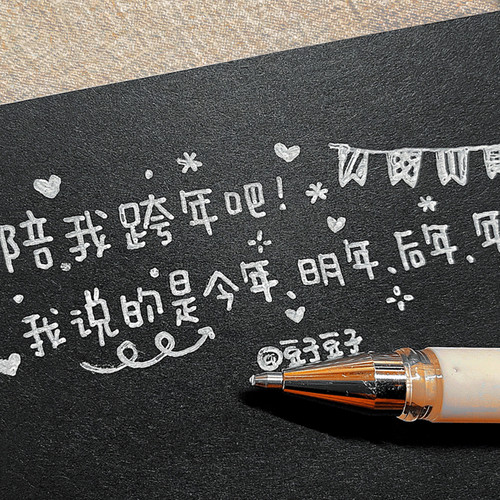 陪我跨年吧!
我说的是今年、明年、后年、年
@豆子豆子